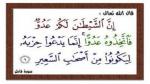 قال الله تعالى :
إِنَّ ٱلشَّيْطَٰنَ لَكُمْ عَدُوٌّ
فَٱتَّخِذُوهُ عَدُوًّا ۚ إِنَّمَا يَدْعُوا۟ حِزْبَهُۥ
لِيَكُونُوا۟ مِنْ أَصْحَٰبِ ٱلسَّعِيرِ
سورة فاطر